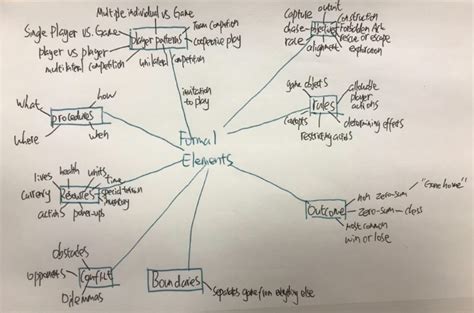 Multiple individual vs Game
Single Player vs. Game
Team Competition
player vs player
player patterns
cooperative play
multilateral competition
unilateral competition
invitation
to play
capture
outwit
construction
chase
objectives
Forbidden Act
race
rescue or escape
alignment
exploration
game objects
allowable
player
actions
rules
concepts
determining effects
restricting actions
what
how
procedures
where
when
Formal
Elements
lives
health
units
time
currency
Resources
special terrain
inventory
actions
power-ups
Outcome
non zero-sum
"Gone home"
zero-sum
chess
most common
win or lose
obstacles
opponents
Conflict
Dilemmas
Boundaries
Separates game from everything else